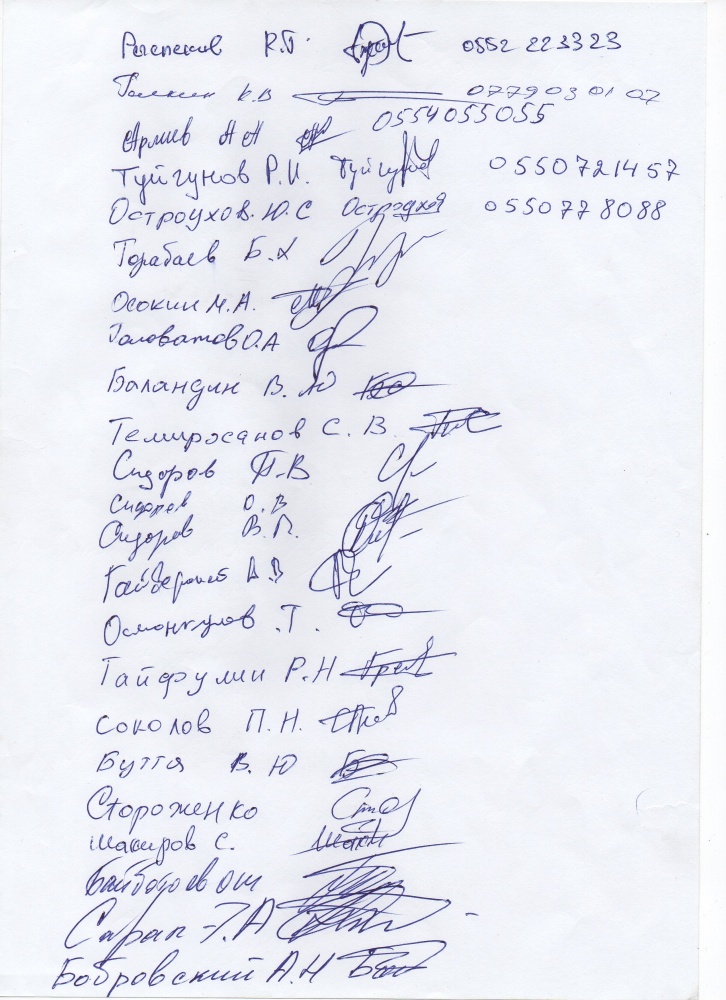 К.Т. 0552 223323
К.В 0779030107
Армиев А А 0554055055
Туйгунов Р.И. Туйгунов 0550721457
Остроухов.Ю.С Остроухов 0550778088
Торабаев Б.
Осокин М.А.
Головатов О.А
Баландин В.Ю
Темиросанов С.В.
Сидоров П.В
Сидорев О.В
Сидоров В.П.
А.В
Осмонкулов .Т.
Гайфулин Р.Н
Соколов П.Н.
Бутта В.Ю
Стороженко
Шакиров С.
Сарап А
Бобровский А.Н